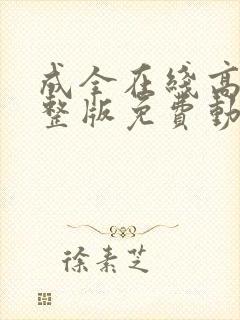 成全在线高
整版免費動
徐素芝